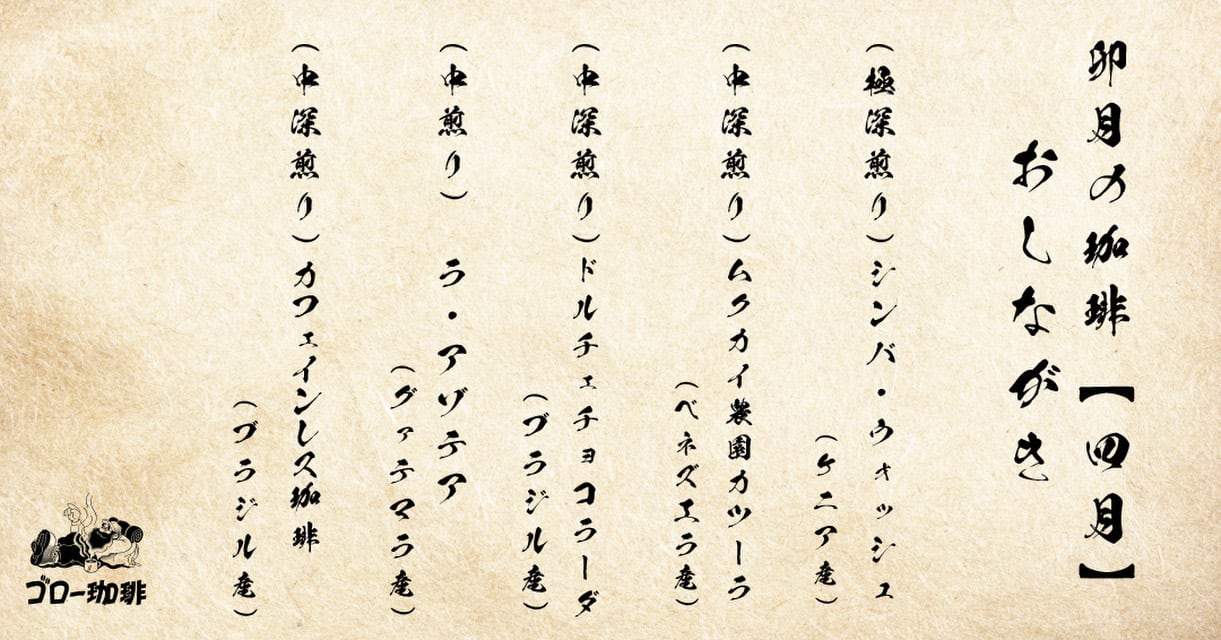 卯月の珈琲【四月】
おしながき
（極深煎り）シンバ・ウォッシュ
（ケニア産）
（中深煎り）ムクカイ農園カツーラ
（ベネズエラ産）
（中深煎り）ドルチェチョコラーダ
（ブラジル産）
（中煎り）　ラ・アゾテア
（グァテマラ産）
（中深煎り）カフェインレス珈琲
（ブラジル産）
ゴロー珈琲